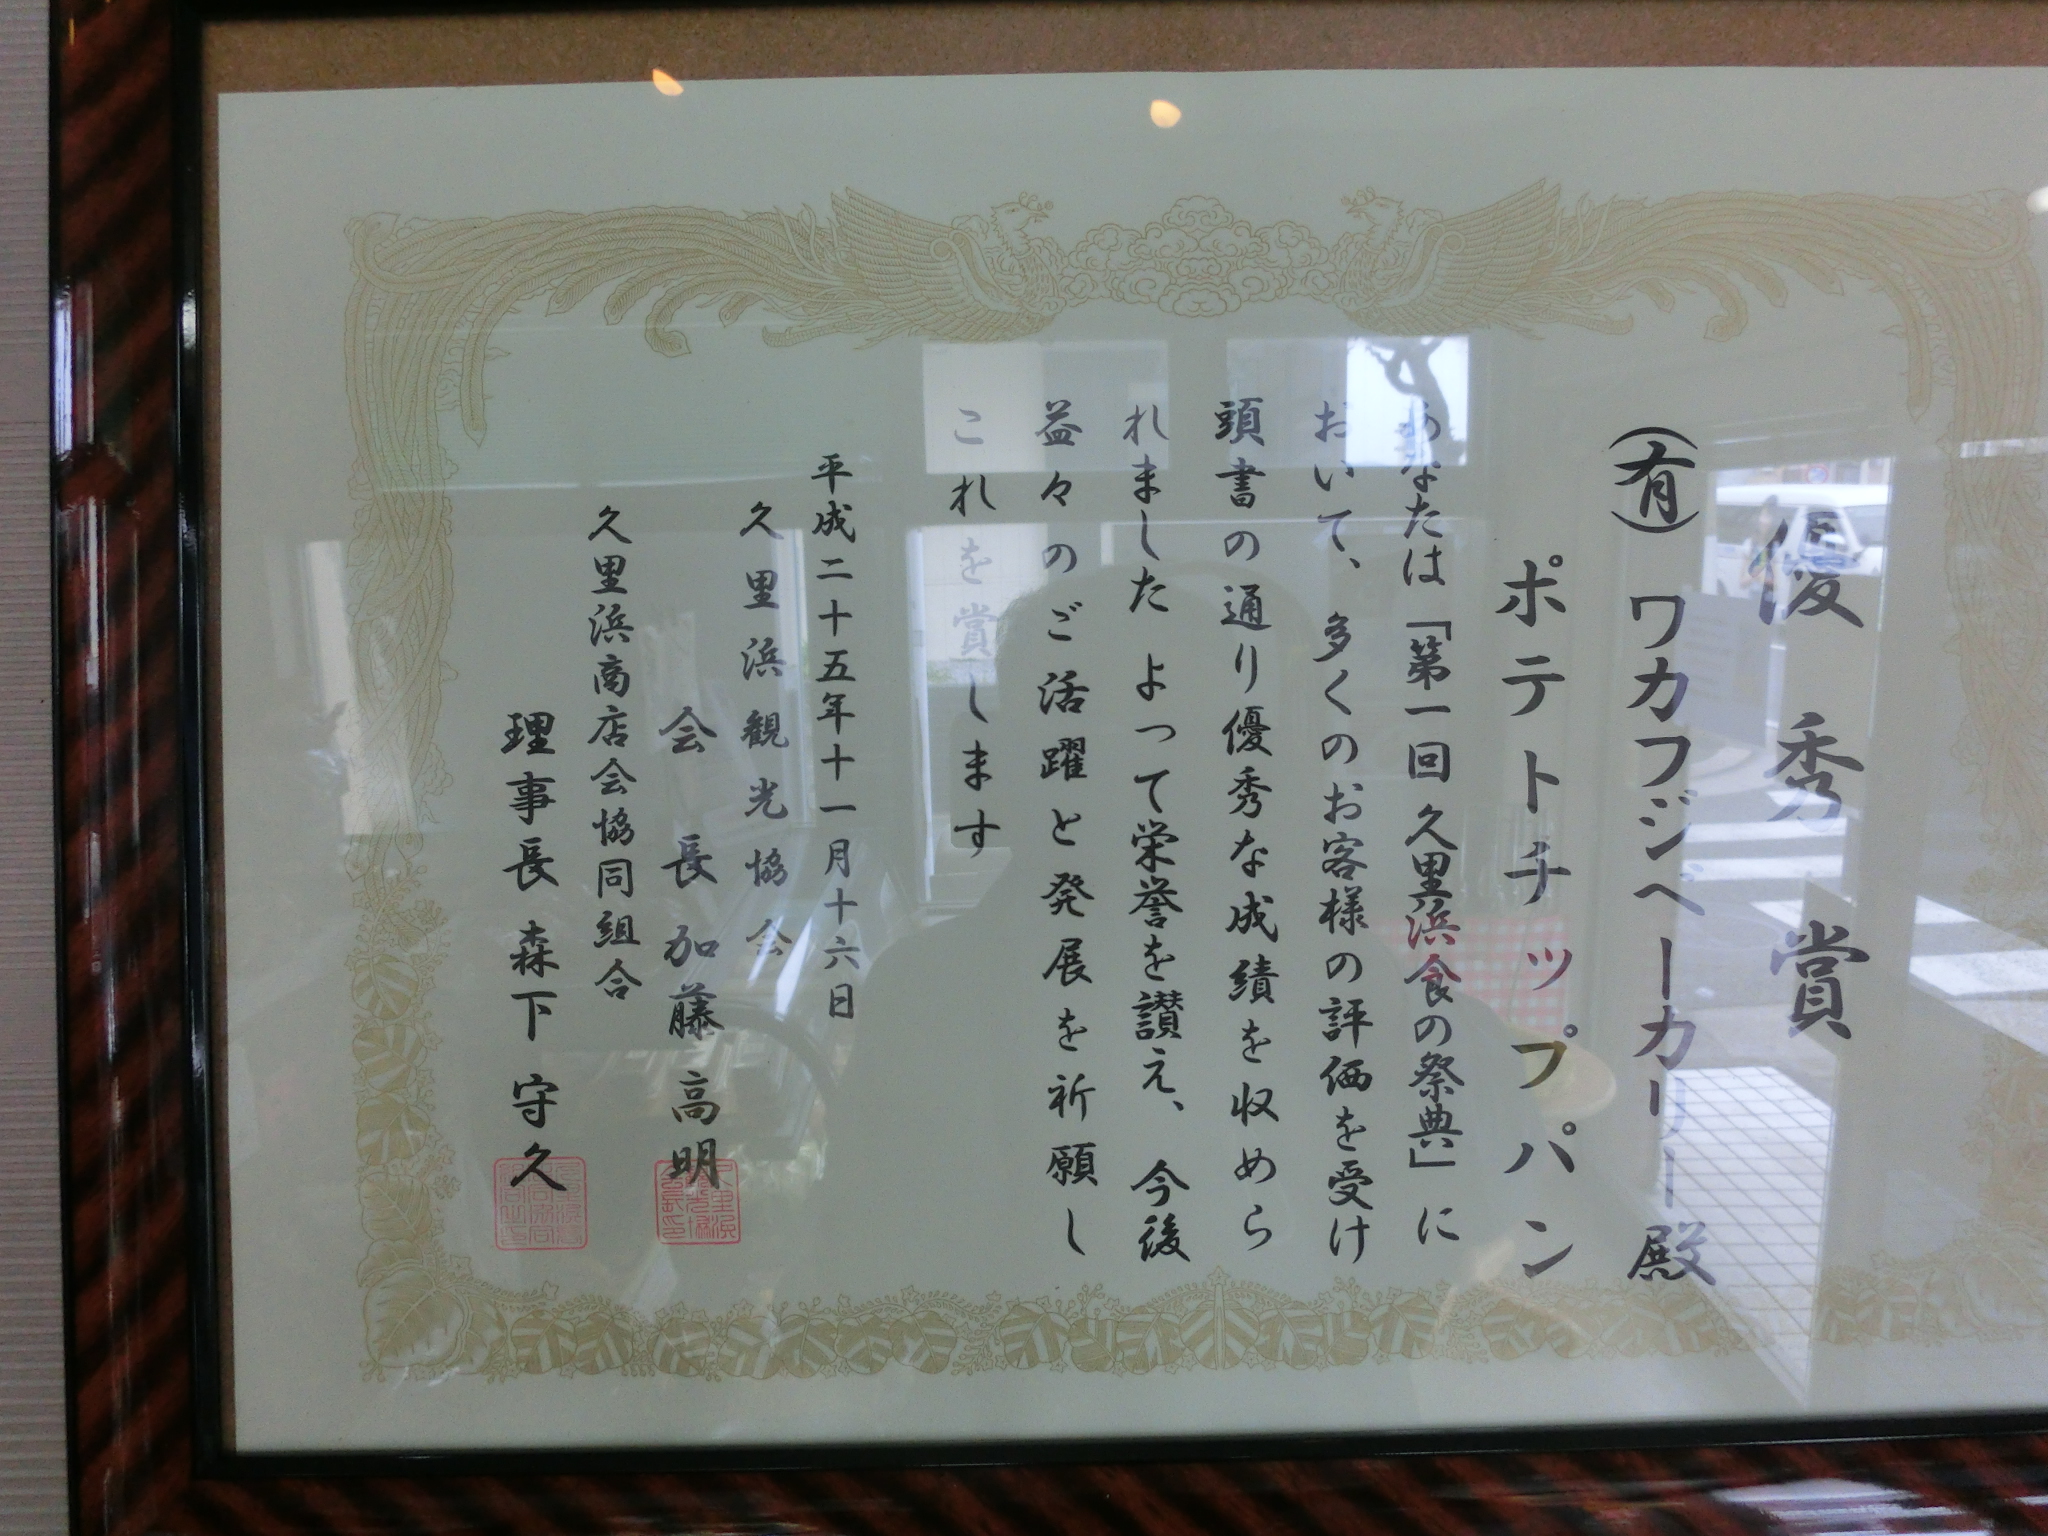 優秀賞
(有)ワカフジベーカリー殿
ポテトチップパン
あなたは「第一回久里浜食の祭典」に
おいて、多くのお客様の評価を受け
頭書の通り優秀な成績を収めら
れました よって栄誉を讃え、今後
益々のご活躍と発展を祈願し
これを賞します
平成二十五年十一月十六日
久里浜観光協会
会長 加藤 高明
久里浜商店会協同組合
理事長 森下 守久